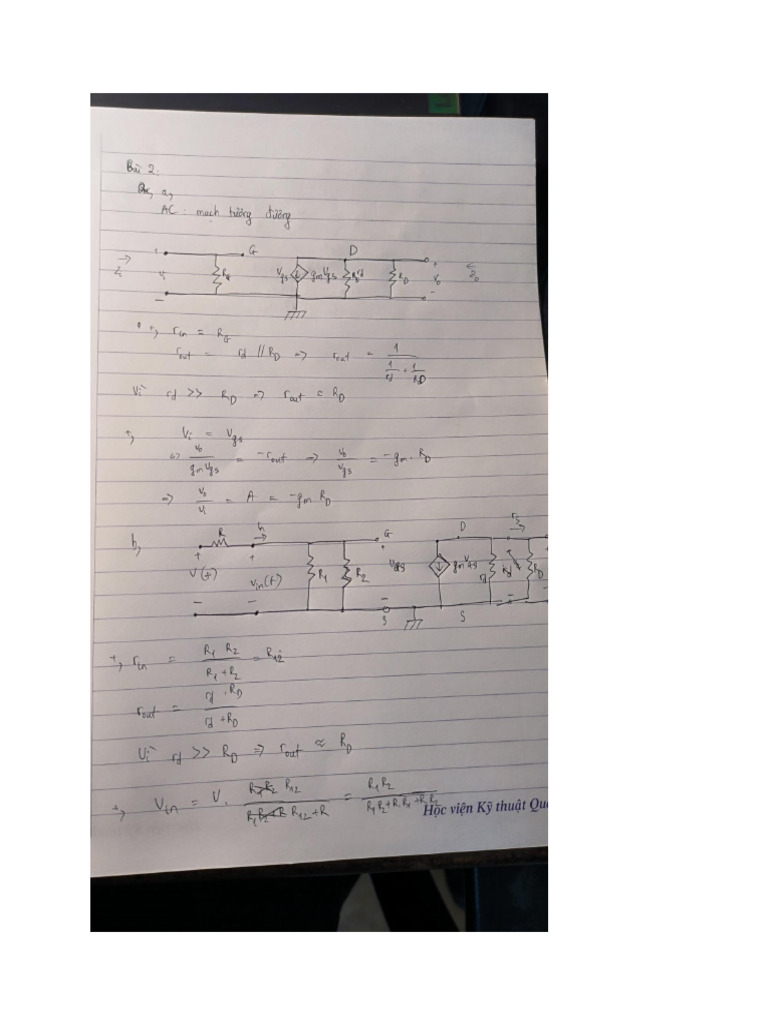 Bài 2:
a,
AC: mạch tương đương
+ G D +
Zi Vi RG Vgs gmVgs rd RD Vo Zo
− −
+, rin = RG
rout = rd // RD => rout = 1 / (1/rd + 1/RD)
Vì rd >> RD => rout = RD
+, Vi = Vgs
=> Vo/(gmVgs) = -rout => Vo/Vgs = -gm.RD
=> Vo/Vi = A = -gm RD
b, R in G D
+ + +
V(t) Vin(t) R1 R2 Vgs gmVgs rd RD
− − − S S
+, rin = R1 R2 / (R1 + R2) = R12
rout = rd . RD / (rd + RD)
Vì rd >> RD => rout ≈ RD
+, Vin = V. R12 / (R12 + R) = R1 R2 / (R1R2 + R.R1 + R.R2)
Học viện Kỹ thuật Qu